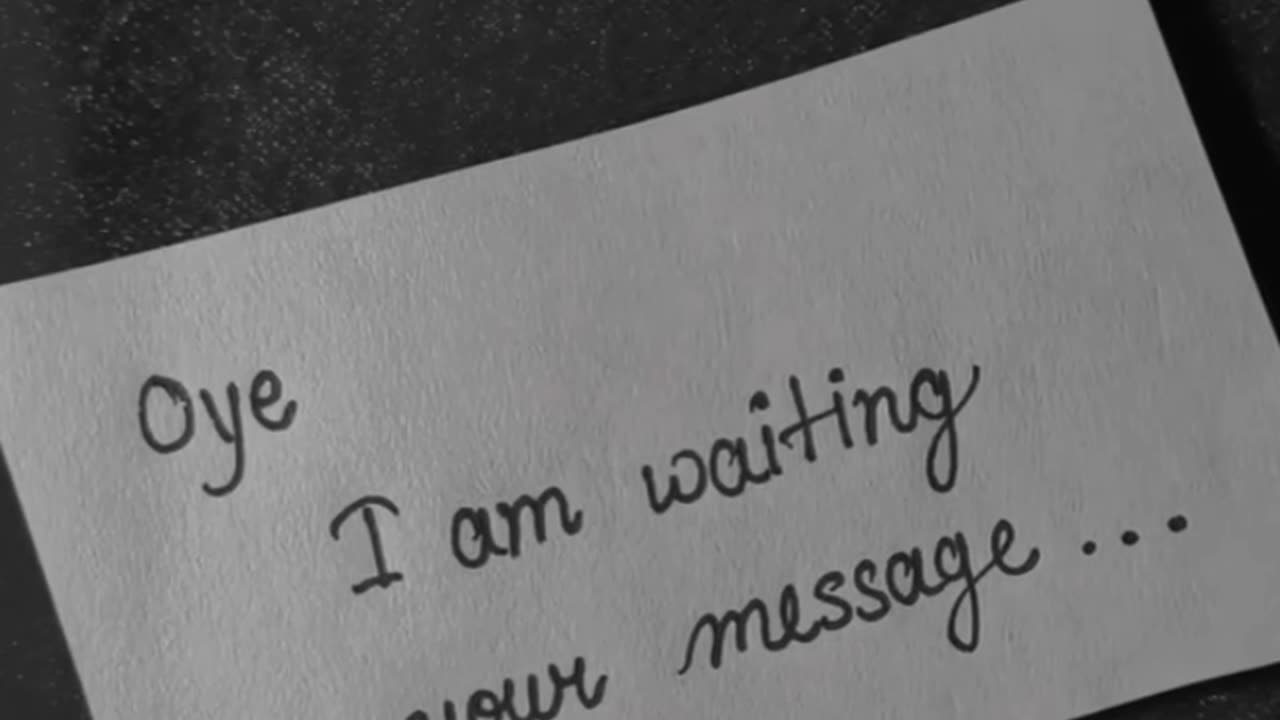 Oye
I am waiting
your message...